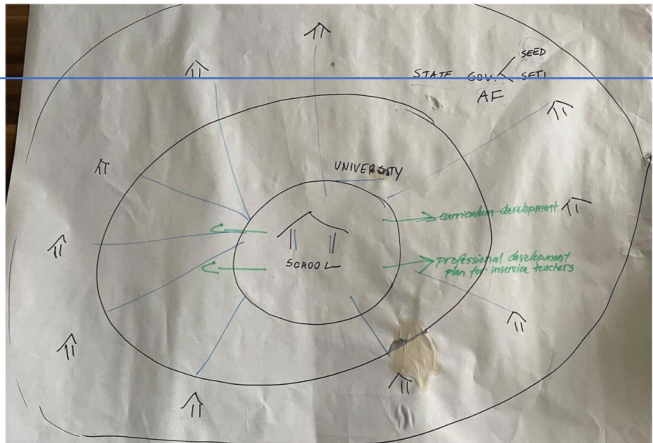 SEED
STATE GOV. SETI
AF
UNIVERSITY
curriculum development
SCHOOL
professional development
plan for inservice teachers